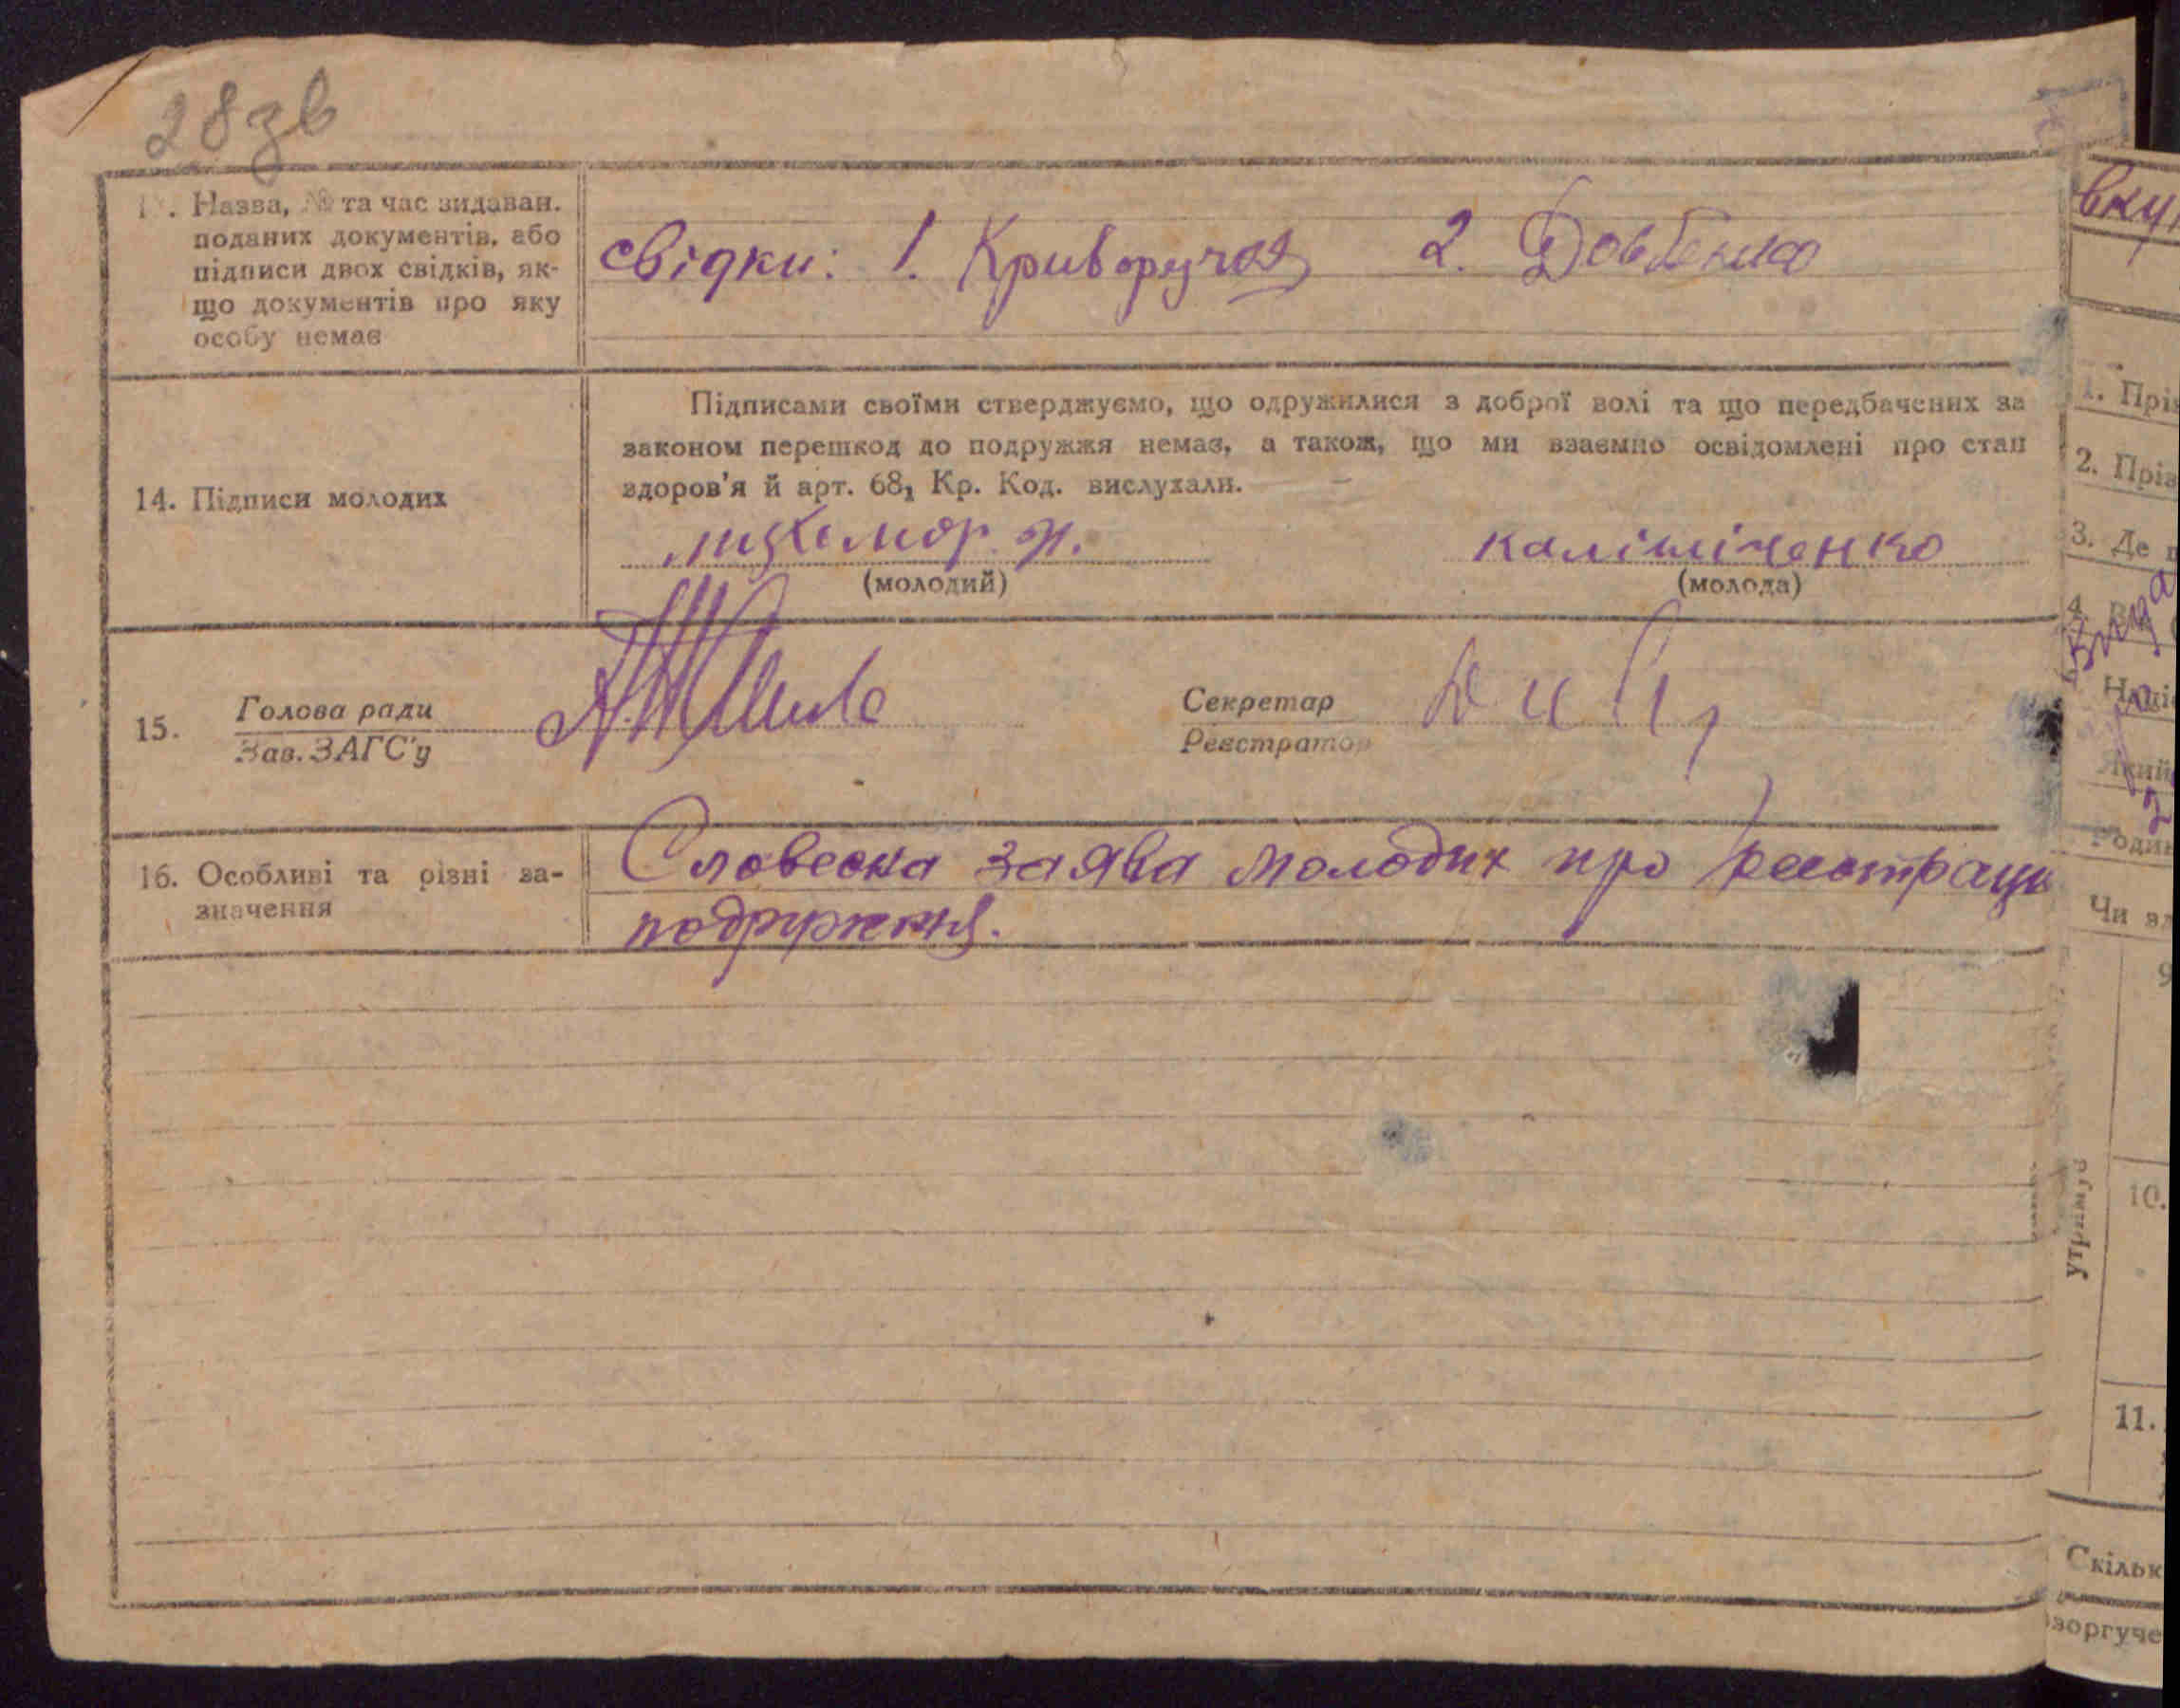 28зв
. Назва, № та час видаван.
поданих документів, або
підписи двох свідків, як-
що документів про яку
особу немає
свідки: 1. Криворучко 2. Довбенко
14. Підписи молодих
Підписами своїми стверджуємо, що одружилися з доброї волі та що передбачених за
законом перешкод до подружжя немає, а також, що ми взаємно освідомлені про стан
здоров'я й арт. 68₁ Кр. Код. вислухали.
калініченко
(молодий) (молода)
15. Голова ради
Зав. ЗАГС'у
Секретар
Реєстратор
16. Особливі та різні за-
значення
Словесна заява молодих про реєстрацію
подруження.
вку
1. Пріз
2. Пріз
3. Де
4. В
Наці
Який
Родин
Чи вл
9
10.
утримує
11.
Скільк
зоргуче